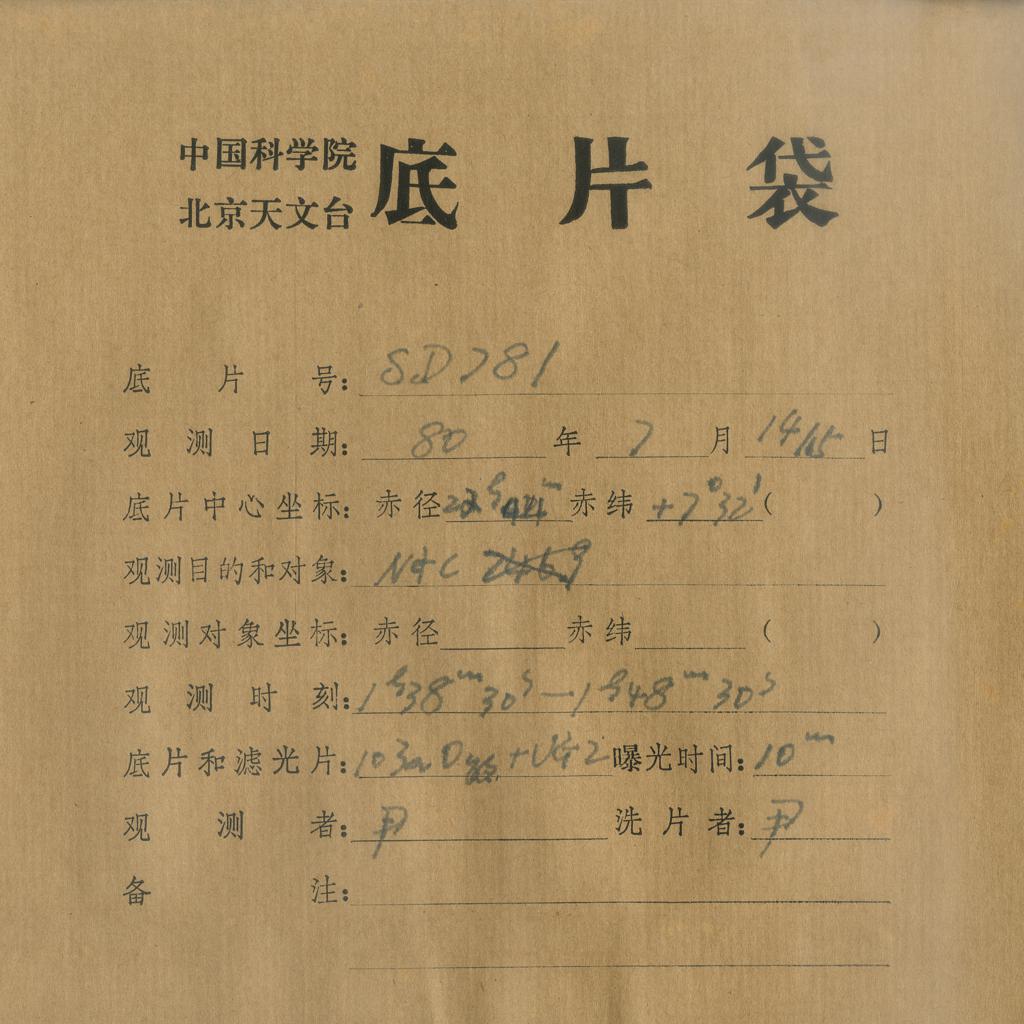 中国科学院
北京天文台
底片袋
底片号：SD781
观测日期：80年7月14/15日
底片中心坐标：赤径 赤纬+7°32′( )
观测目的和对象：
观测对象坐标：赤径 赤纬 ( )
观测时刻：1h38m30s—1h48m30s
底片和滤光片：103aD 曝光时间：10m
观测者：尹 洗片者：尹
备注：